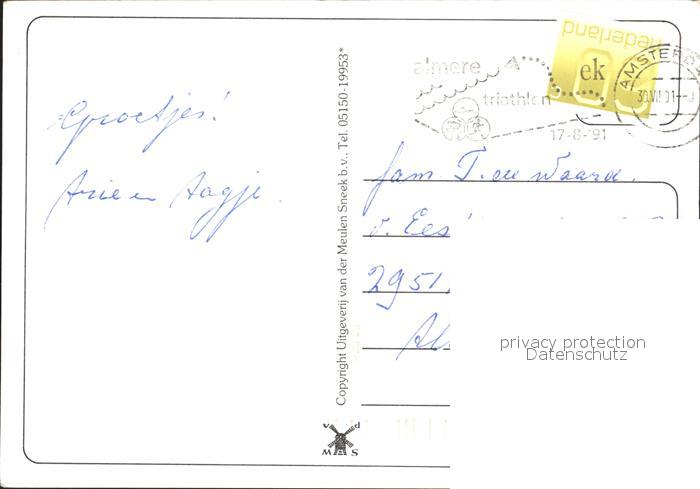 Groetjes!
Arie en Aagje.
Copyright Uitgeverij van der Meulen Sneek b.v., Tel. 05150-19953*
v d
M S
almere
triathlon
17-8-'91
nederland
ek
AMSTERD
30.VII.91
fam T. de Waard.
v. Ees
2951
Al
privacy protection
Datenschutz